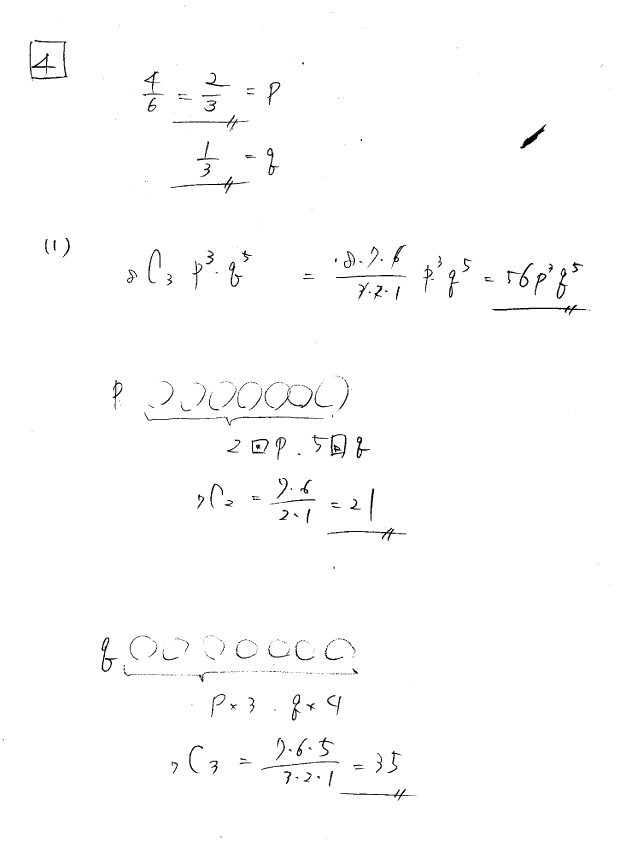 4
4/6 = 2/3 = p
1/3 = q
(1)
₈C₃ p³·q⁵ = 8·7·6/3·2·1 p³q⁵ = 56p³q⁵
p ○○○○○○○
2回p. 5回q
₇C₂ = 7·6/2·1 = 21
q ○○○○○○○
p×3 . q×4
₇C₃ = 7·6·5/3·2·1 = 35